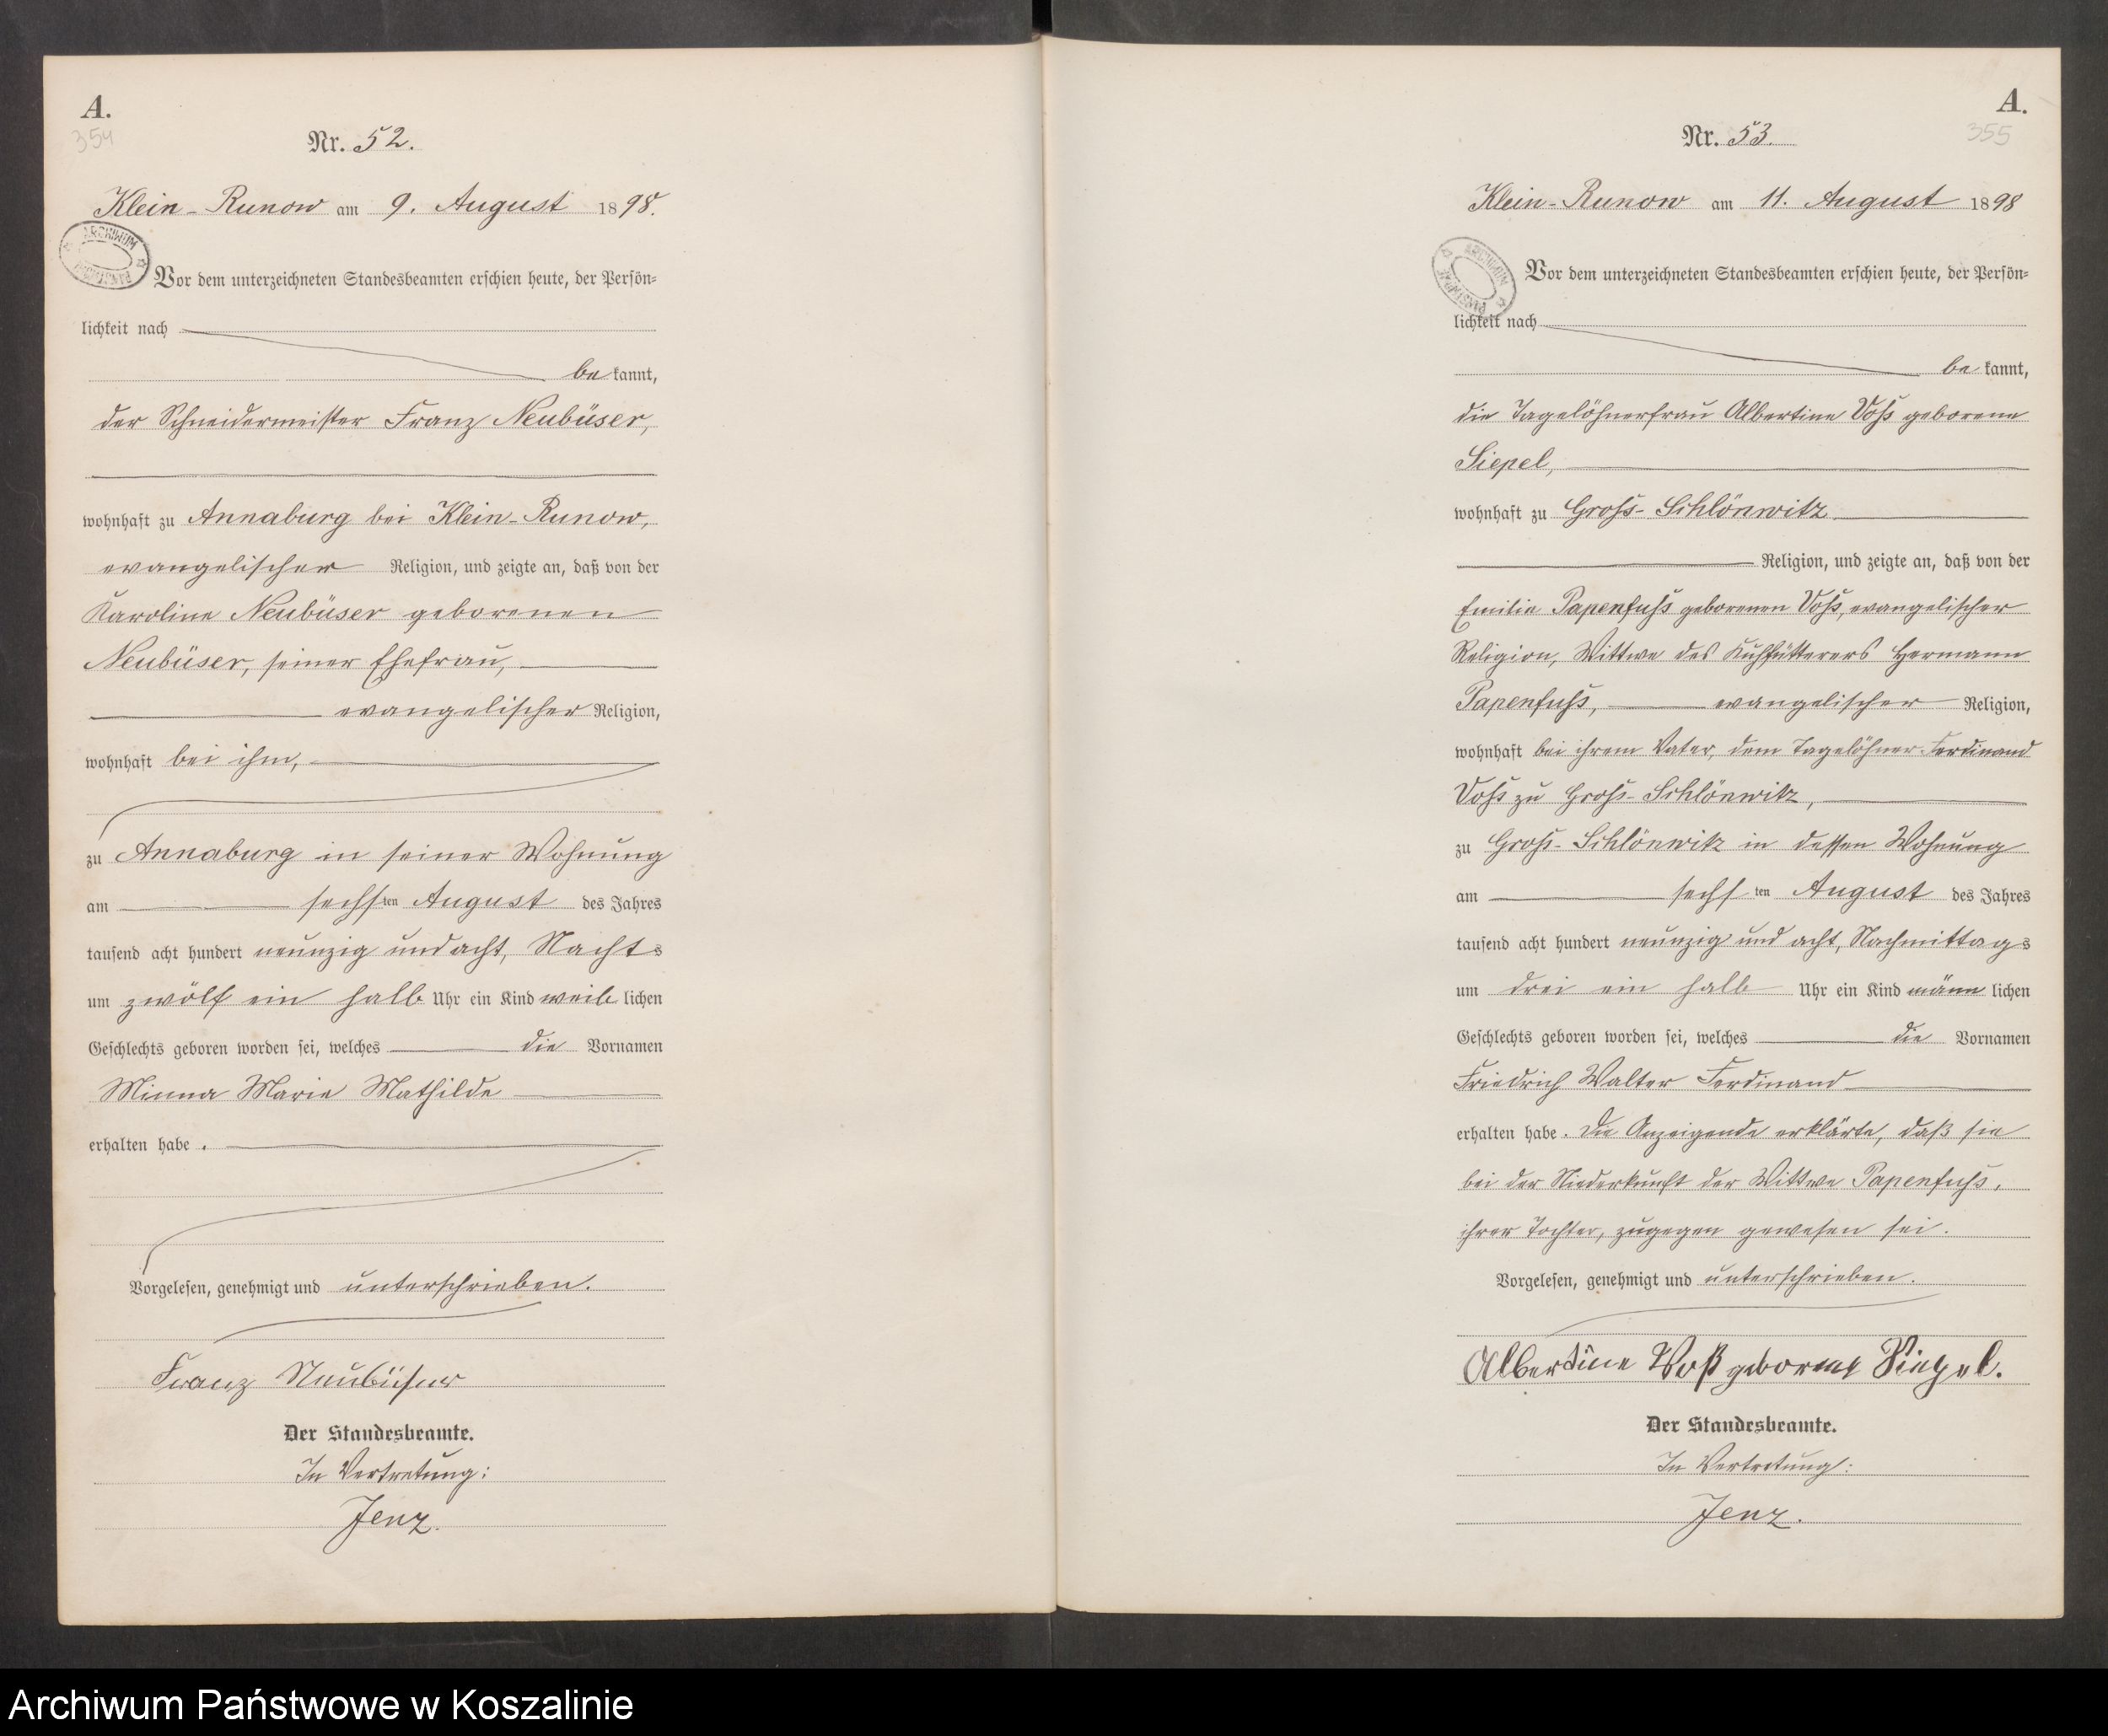 A.
354
Nr. 52.
Klein-Runow am 9. August 1898.
ARCHIWUM
Vor dem unterzeichneten Standesbeamten erschien heute, der Persön-
lichkeit nach
be kannt,
der Schneidermeister Franz Neubüser,
wohnhaft zu Annaburg bei Klein-Runow,
evangelischer Religion, und zeigte an, daß von der
Karoline Neubüser geborenen
Neubüser, seiner Ehefrau,
evangelischer Religion,
wohnhaft bei ihm,
zu Annaburg in seiner Wohnung
am sechsten August des Jahres
tausend acht hundert neunzig und acht, Nachts
um zwölf ein halb Uhr ein Kind weib lichen
Geschlechts geboren worden sei, welches die Vornamen
Minna Marie Mathilde
erhalten habe.
Vorgelesen, genehmigt und unterschrieben.
Franz Neubüser
Der Standesbeamte.
In Vertretung:
Jenz.
A.
355
Nr. 53.
Klein-Runow am 11. August 1898
ARCHIWUM
Vor dem unterzeichneten Standesbeamten erschien heute, der Persön-
lichkeit nach
be kannt,
die Tagelöhnerfrau Albertine Voß geborene
Siepel,
wohnhaft zu Groß-Schlönwitz
Religion, und zeigte an, daß von der
Emilie Papenfuß geborenen Voß, evangelischer
Religion, Wittwe des Kuhfütterers Hermann
Papenfuß, evangelischer Religion,
wohnhaft bei ihrem Vater, dem Tagelöhner Ferdinand
Voß zu Groß-Schlönwitz,
zu Groß-Schlönwitz in dessen Wohnung
am sechs ten August des Jahres
tausend acht hundert neunzig und acht, Nachmittags
um drei ein halb Uhr ein Kind männ lichen
Geschlechts geboren worden sei, welches die Vornamen
Friedrich Walter Ferdinand
erhalten habe. Die Anzeigende erklärte, daß sie
bei der Niederkunft der Wittwe Papenfuß,
ihrer Tochter, zugegen gewesen sei.
Vorgelesen, genehmigt und unterschrieben.
Albertine Voß geborene Siepel.
Der Standesbeamte.
In Vertretung:
Jenz.
Archiwum Państwowe w Koszalinie